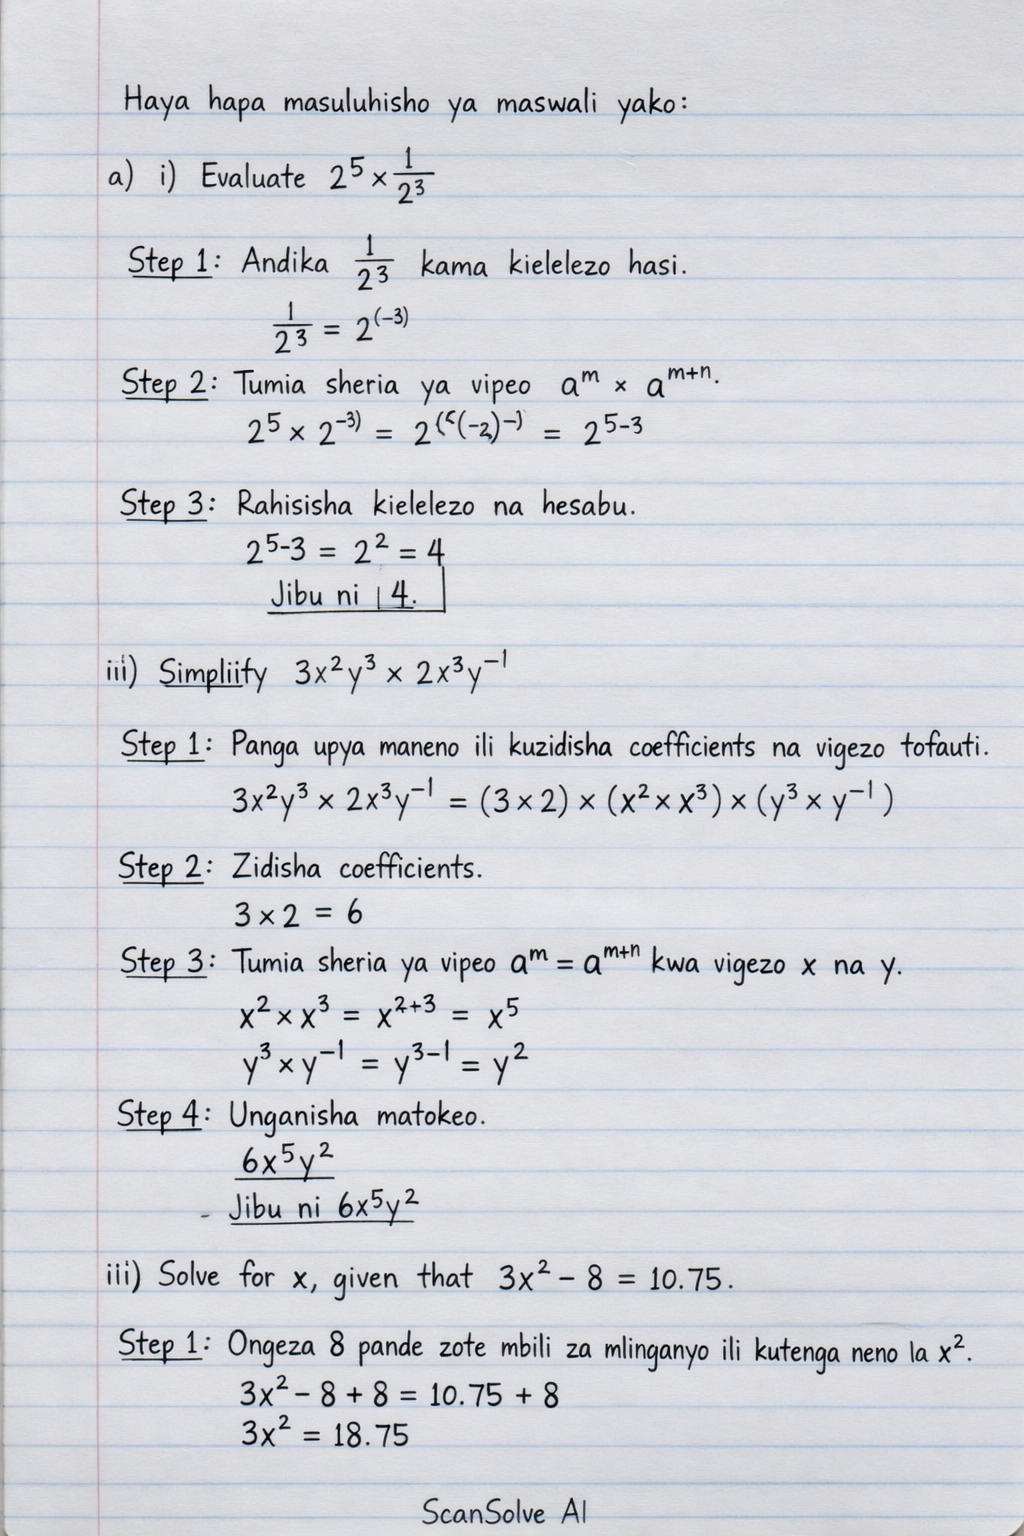 Haya hapa masuluhisho ya maswali yako:
a) i) Evaluate 2⁵ × 1/2³
Step 1: Andika 1/2³ kama kielelezo hasi.
1/2³ = 2⁽⁻³⁾
Step 2: Tumia sheria ya vipeo aᵐ × aᵐ⁺ⁿ.
2⁵ × 2⁻³⁾ = = 2⁵⁻³
Step 3: Rahisisha kielelezo na hesabu.
2⁵⁻³ = 2² = 4
Jibu ni 4.
iii) Simpliify 3x²y³ × 2x³y⁻¹
Step 1: Panga upya maneno ili kuzidisha coefficients na vigezo tofauti.
3x²y³ × 2x³y⁻¹ = (3 × 2) × (x² × x³) × (y³ × y⁻¹)
Step 2: Zidisha coefficients.
3 × 2 = 6
Step 3: Tumia sheria ya vipeo aᵐ = aᵐ⁺ⁿ kwa vigezo x na y.
x² × x³ = x²⁺³ = x⁵
y³ × y⁻¹ = y³⁻¹ = y²
Step 4: Unganisha matokeo.
6x⁵y²
- Jibu ni 6x⁵y²
iii) Solve for x, given that 3x² – 8 = 10.75.
Step 1: Ongeza 8 pande zote mbili za mlinganyo ili kutenga neno la x².
3x² – 8 + 8 = 10.75 + 8
3x² = 18.75
ScanSolve AI